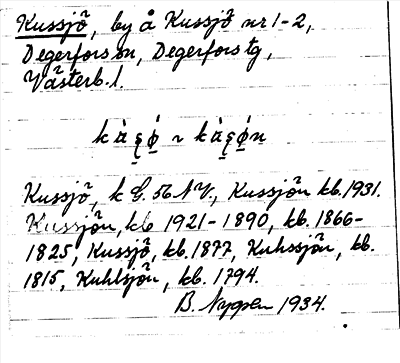 Kussjö, by å Kussjö nr 1-2,
Degerfors sn, Degerfors tg,
Västerb. l.
Kussjö, k G. 56 NV, Kussjön kb. 1931.
Kussjön, kb 1921-1890, kb. 1866-
1825, Kussjö, kb. 1877, Kuhssjön, kb.
1815, Kuhlsjön, kb. 1794.
B. Nygren 1934.